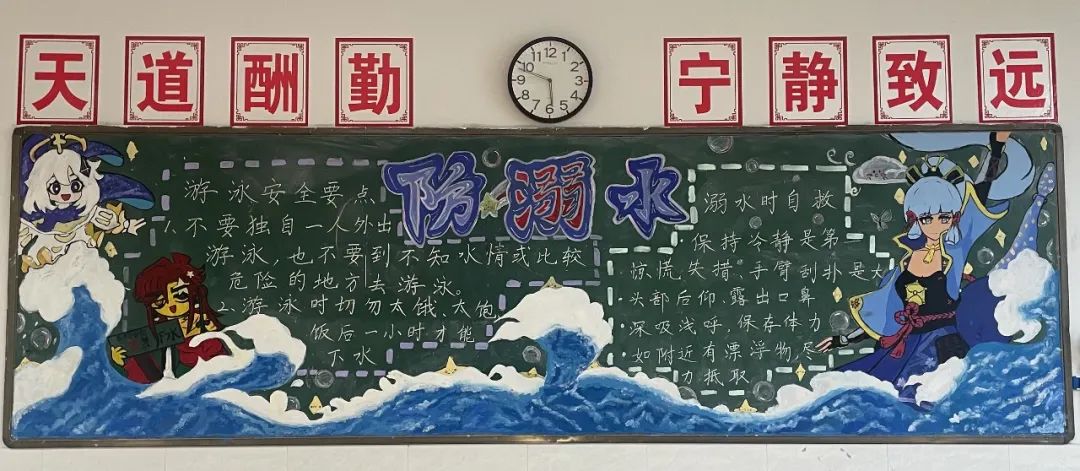 天道酬勤
宁静致远
防溺水
游泳安全要点
1.不要独自一人外出
游泳,也不要到不知水情或比较
危险的地方去游泳。
2.游泳时切勿太饿、太饱,
饭后一小时才能
下水
溺水时自救
保持冷静是第一
惊慌失措、手臂刮扑是大
·头部后仰、露出口鼻
·深吸浅呼,保存体力
·如附近有漂浮物,尽
力抵取